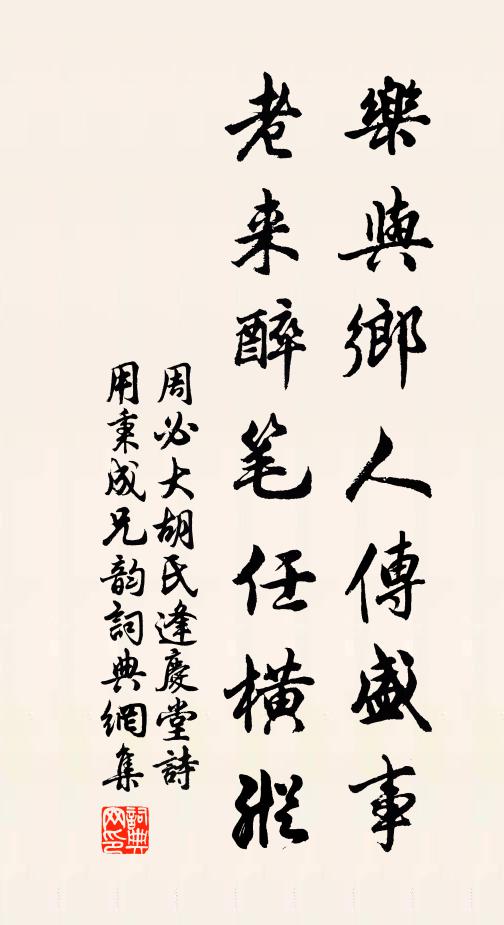 樂與鄉人傳盛事
老来醉笔任橫縱
周必大胡氏逢慶堂詩
用秉成兄韵詞典網集
詞典網印